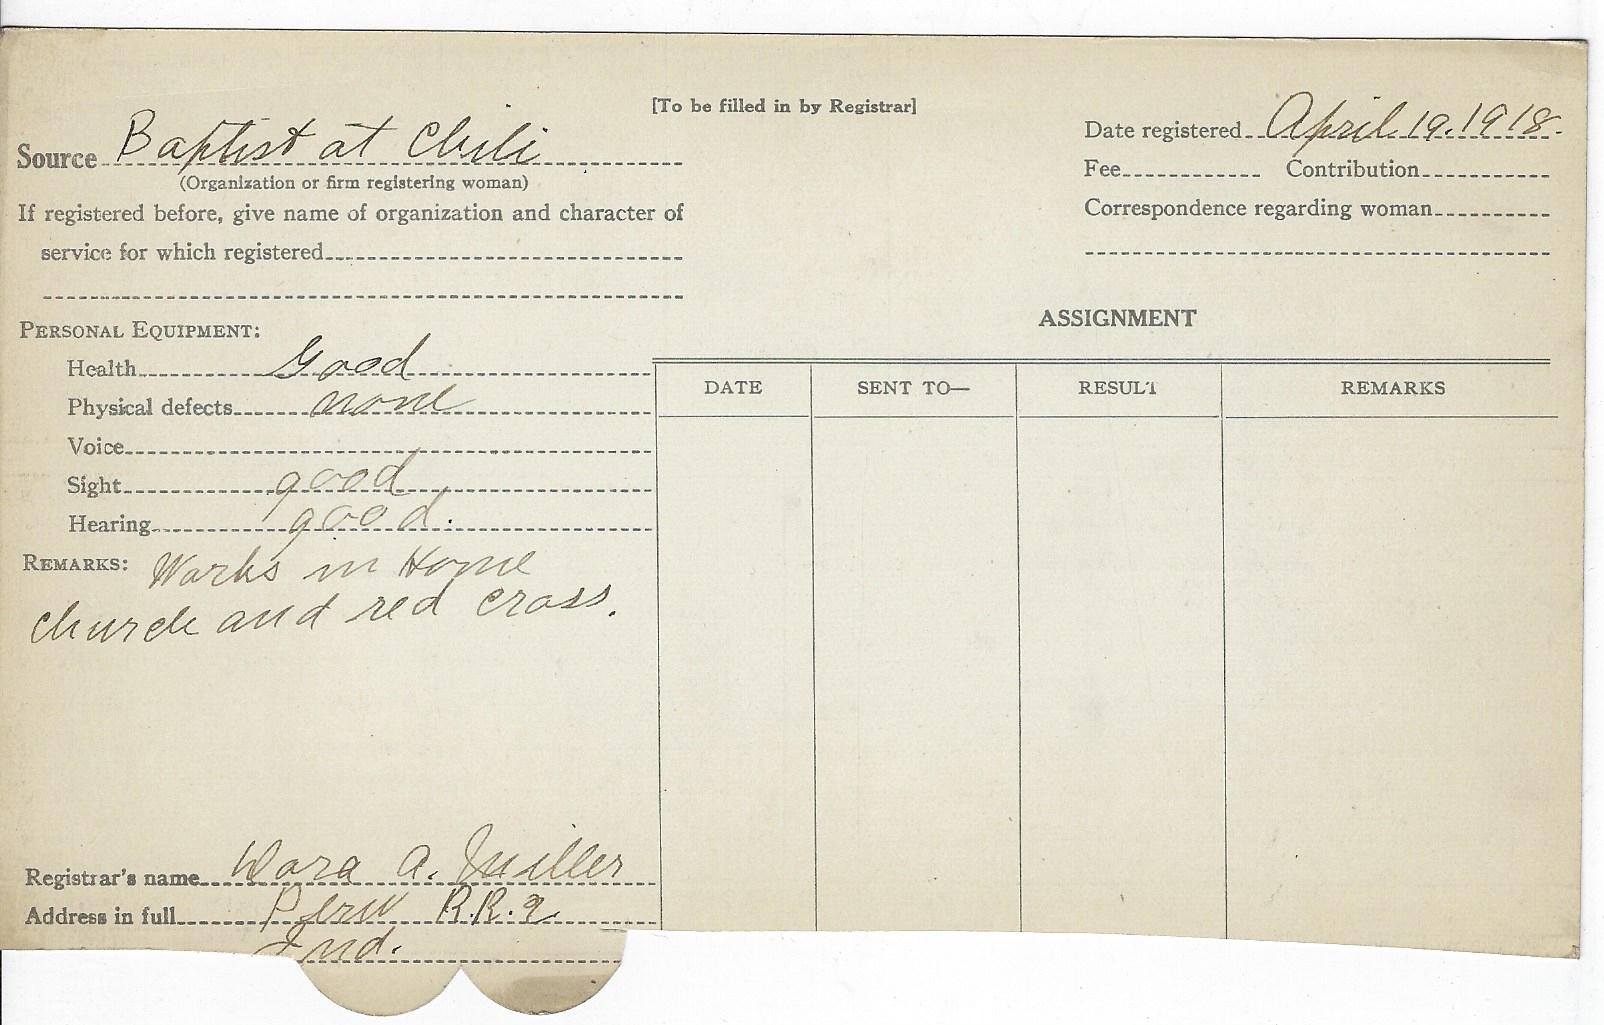 [To be filled in by Registrar]
Source Baptist at Chili
(Organization or firm registering woman)
If registered before, give name of organization and character of
service for which registered
Date registered April 19, 1918.
Fee Contribution
Correspondence regarding woman
PERSONAL EQUIPMENT:
Health Good
Physical defects none
Voice
Sight good
Hearing good.
REMARKS: Works in Home
church and red cross.
Registrar's name Dora A. Miller
Address in full Peru R.R. 2
Ind.
ASSIGNMENT
DATE SENT TO— RESULT REMARKS